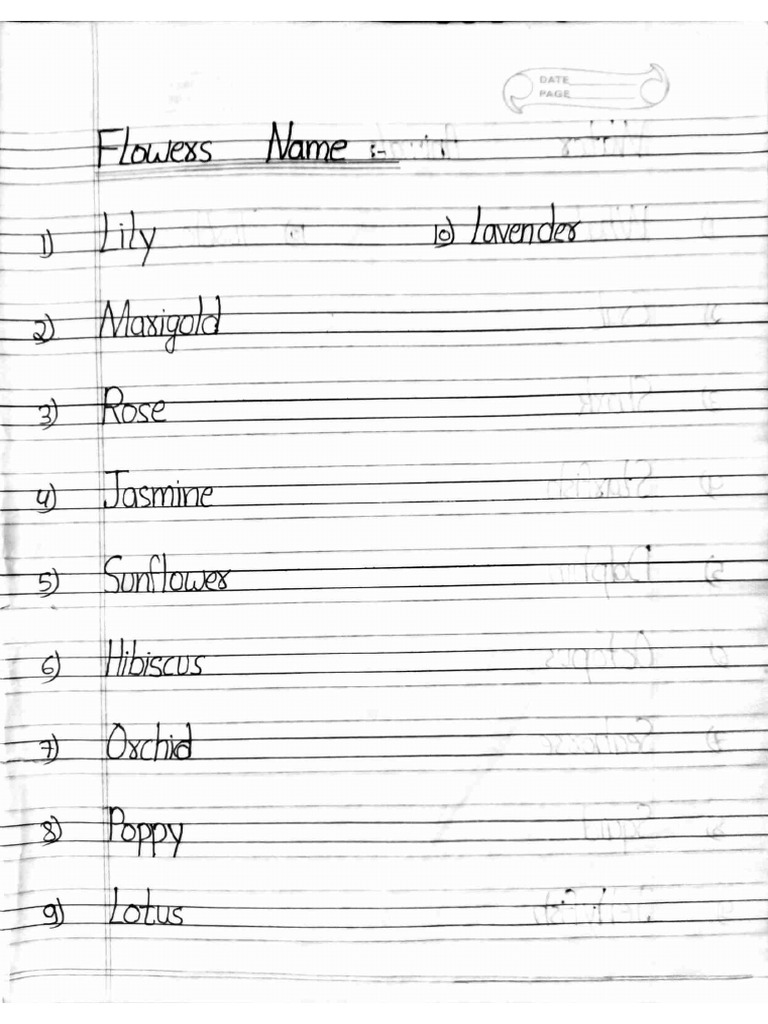 DATE
PAGE
Flowers Name :-
1) Lily
2) Marigold
3) Rose
4) Jasmine
5) Sunflower
6) Hibiscus
7) Orchid
8) Poppy
9) Lotus
10) Lavender